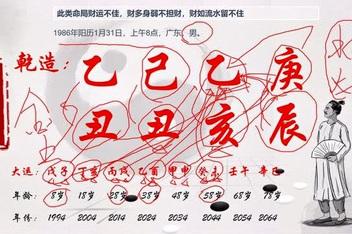 此类命局财运不佳，财多身弱不担财，财如流水留不住
1986年阳历1月31日，上午8点，广东，男。
乾造：乙 己 乙 庚
丑 丑 亥 辰
大运：戊子 丁亥 丙戌 乙酉 甲申 癸未 壬午 辛巳
年龄：8岁 18岁 28岁 38岁 48岁 58岁 68岁 78岁
年份：1994 2004 2014 2024 2034 2044 2054 2064